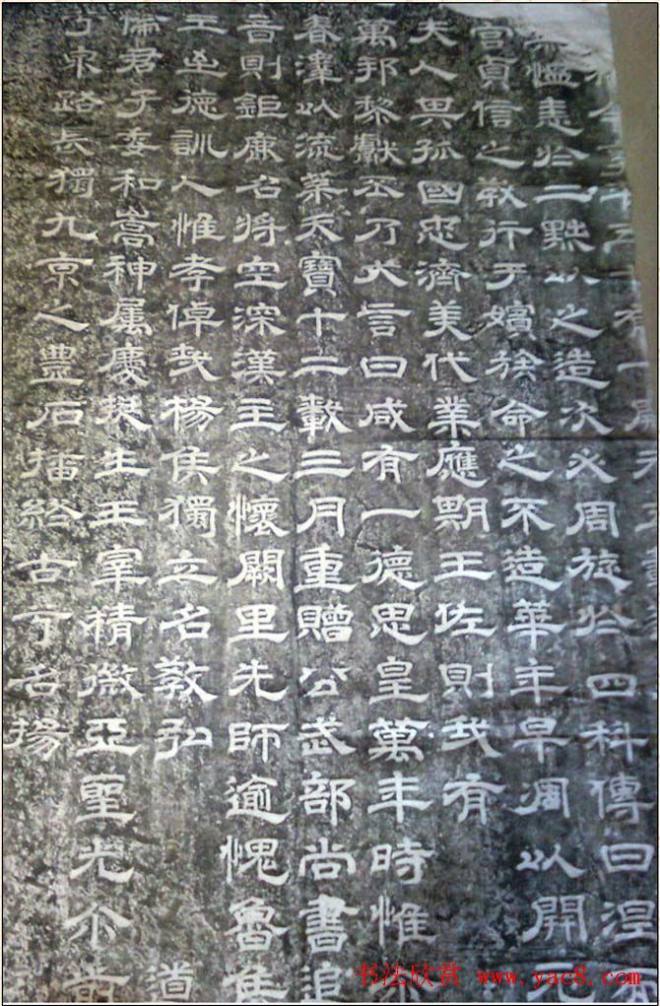 慍憲於二黜以之造次必周旋於四科傳曰涅而
宮貞信之教行于嬪族命之不造華年早凋以開元
夫人畀孤國忠濟美代業應期王佐則我有
萬邦黎獻丕乃大言曰咸有一德思皇萬年時惟
春澤以流葉天寶十二載三月重贈公武部尚書追
音則鉅鹿名將空深漢主之懷闕里先師逾愧魯侯
王道德訓人惟孝倬哉楊侯獨立名教弘道
儒君子委和嵩神屬慶挺生王宰精微亞聖光
泉路長獨九京之豊石終古可名揚
书法欣赏 www.yac8.com